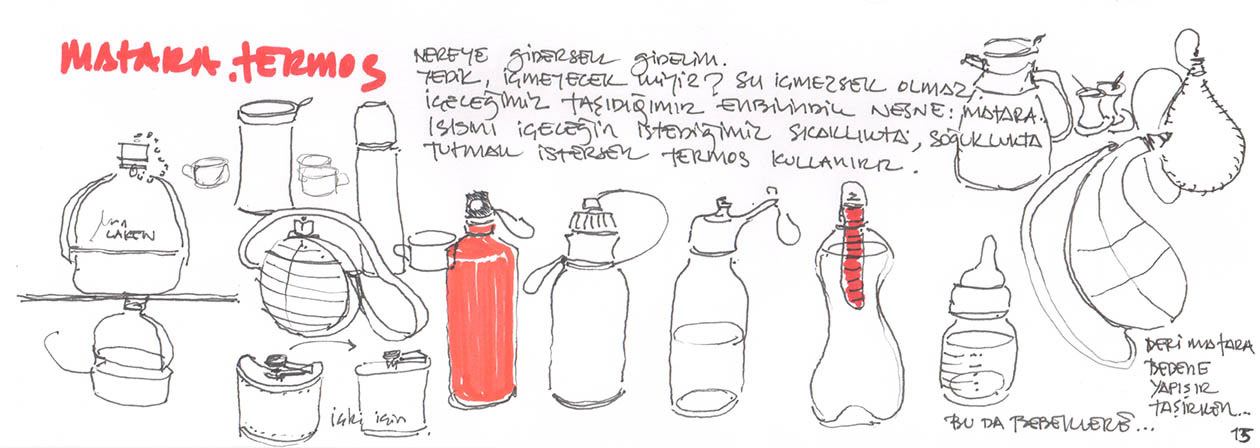 MATARA.TERMOS
NEREYE GİDERSEK GİDELİM.
YEDİK, İÇMEYECEK MİYİZ? SU İÇMEZSEK OLMAZ,
İÇECEĞİMİZ TAŞIDIĞIMIZ ENBİLİNDİK NESNE: MATARA.
ISISNI İÇECEĞİN İSTEDİĞİMİZ SICAKLIKTA, SOĞUKLUKTA
TUTMAK İSTERSEK TERMOS KULLANIRIZ.
LAKEN
içki için
BU DA BEBEKLERE...
DERİ MATARA
BEDENE
YAPIŞIR
TAŞIRKEN...
13